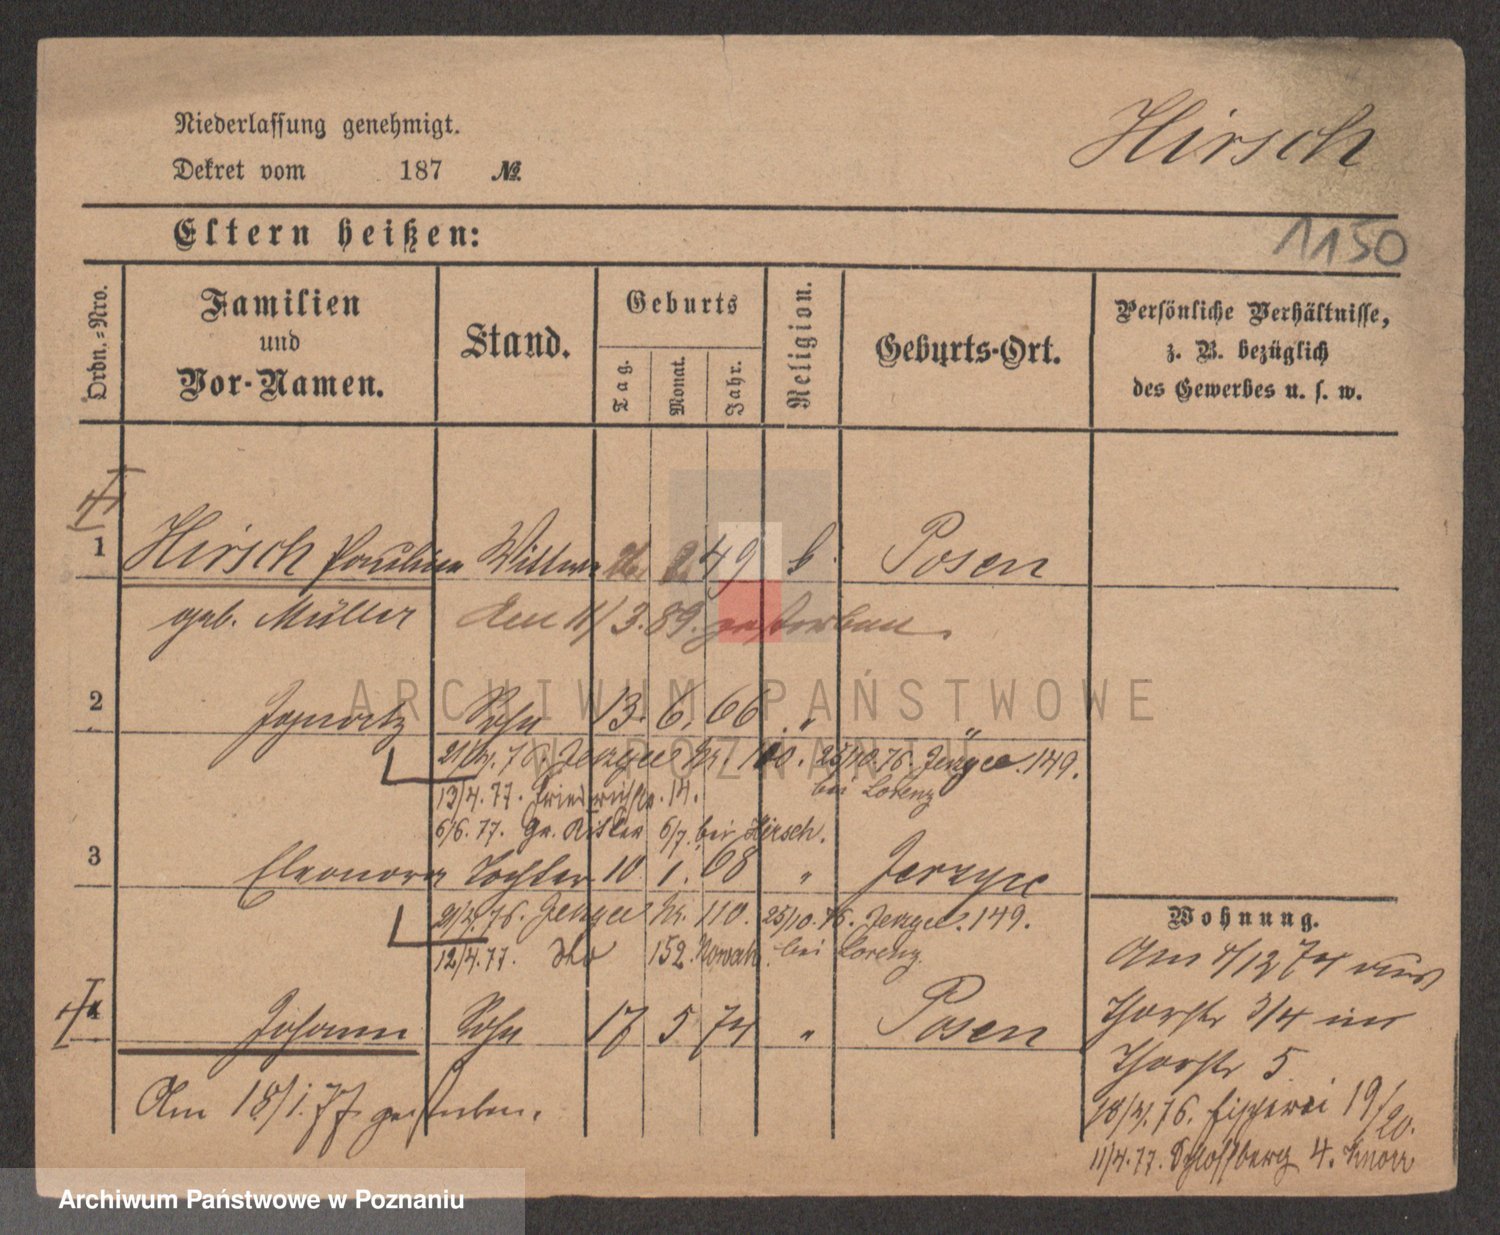 Niederlassung genehmigt.
Dekret vom 187 №.
Hirsch
Eltern heißen:
1150
Ordn.-Nro.
Familien
und
Vor-Namen.
Stand.
Geburts
Tag.
Monat.
Jahr.
Religion.
Geburts-Ort.
Persönliche Verhältnisse,
z. B. bezüglich
des Gewerbes u. s. w.
1 Hirsch Pauline Wittwe 49 Posen
geb. Müller Am 11/3.89. gestorben.
ARCHIWUM PAŃSTWOWE
W POZNANIU
2 Sohn 13. 6. 66 " "
21/4. 76. Jerzyce Nr. 110. 25/10. 76. Jerzyce. 149.
bei Lorenz
13/4. 77. Friedrichstr. 14.
6/6. 77. Gr. Ritter 6/7. bei Hirsch.
3 Eleonora Tochter 10 1. 68 " Jerzyce
21/4. 76. Jerzyce Nr. 110. 25/10. 76. Jerzyce. 149.
12/4. 77. dto 152. Nowak. bei Lorenz.
4 Johann Sohn 17 5 74 " Posen
Am 18/1. 77 gestorben.
Wohnung.
Am 4/12 74 aus
Thorstr 3/4 in
Thorstr 5
18/4. 76. Fischerei 19/20.
11/4. 77. Schlossberg 4. Knorr
Archiwum Państwowe w Poznaniu